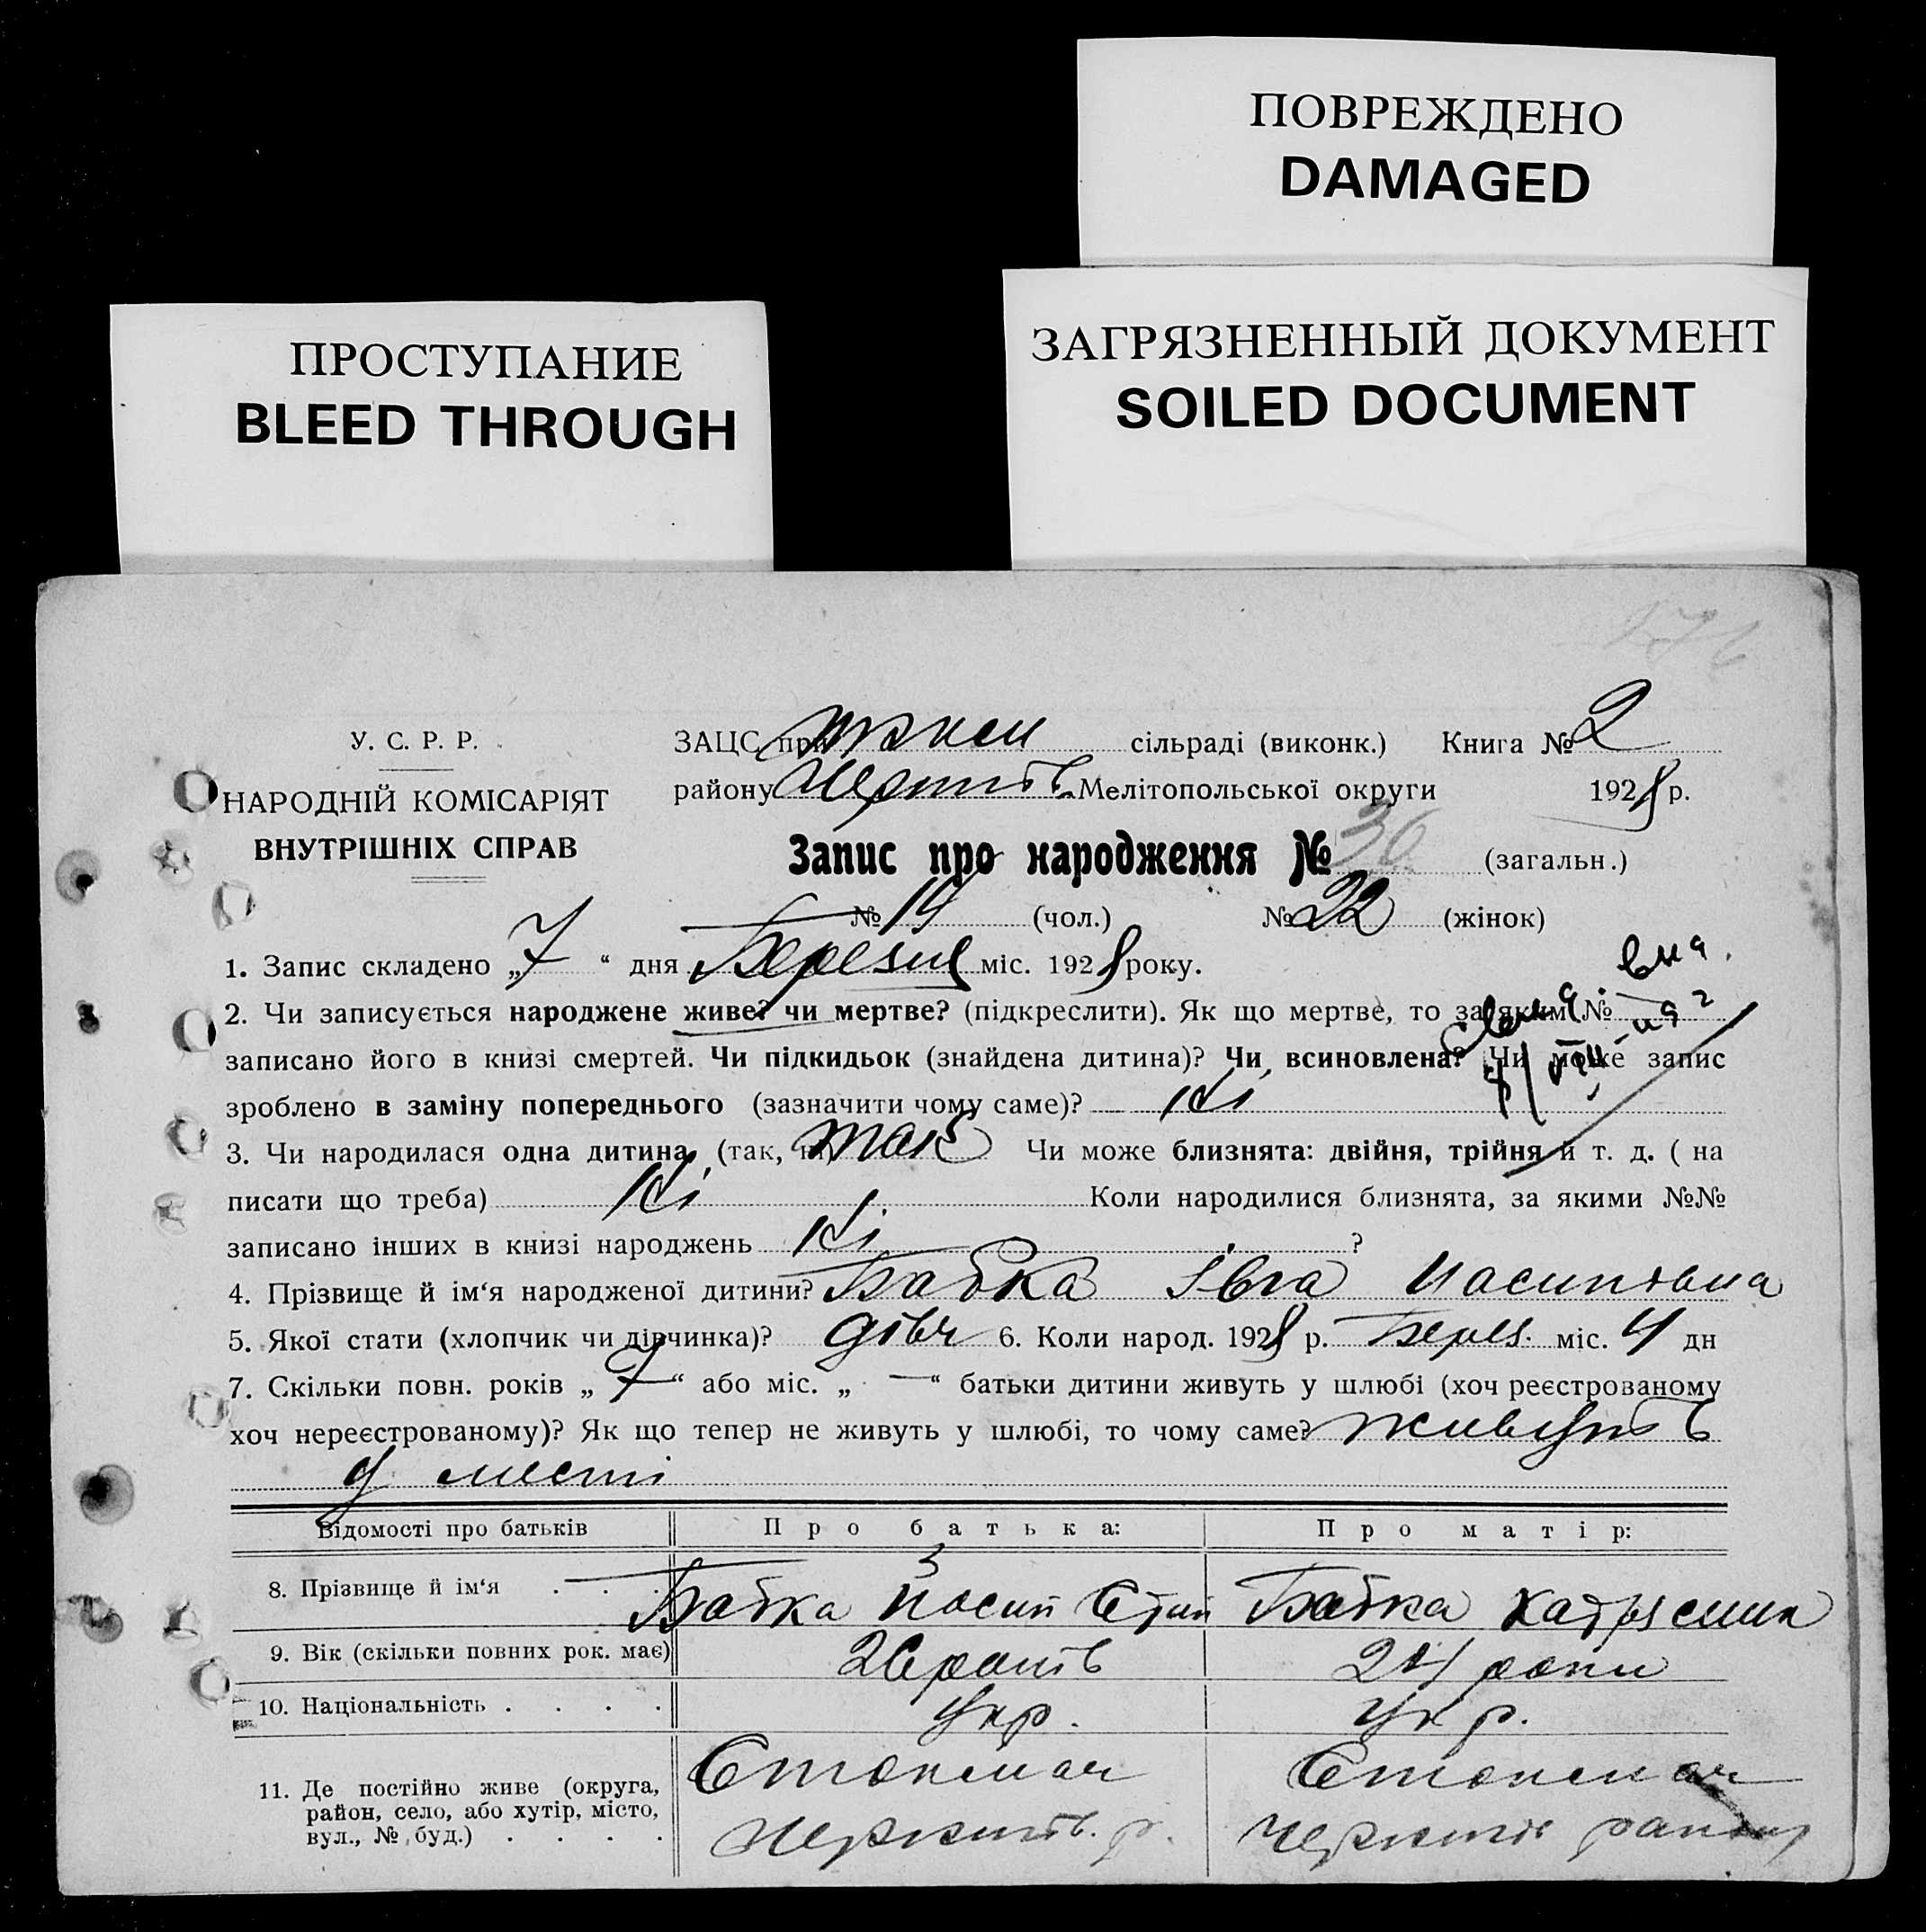 ПОВРЕЖДЕНО
DAMAGED
ЗАГРЯЗНЕННЫЙ ДОКУМЕНТ
SOILED DOCUMENT
ПРОСТУПАНИЕ
BLEED THROUGH
176
У. С. Р. Р.
НАРОДНІЙ КОМІСАРІЯТ
ВНУТРІШНІХ СПРАВ
ЗАЦС при сільраді (виконк.) Книга № 2
району Мелітопольської округи 1928 р.
Запис про народження № 36 (загальн.)
№ 14 (чол.) № 22 (жінок)
1. Запис складено „7“ дня Березня міс. 1928 року.
2. Чи записується народжене живе? чи мертве? (підкреслити). Як що мертве, то за яким №
записано його в книзі смертей. Чи підкидьок (знайдена дитина)? Чи всиновлена? Чи може запис
зроблено в заміну попереднього (зазначити чому саме)? Ні
3. Чи народилася одна дитина (так, ні) так Чи може близнята: двійня, трійня й т. д. ( на
писати що треба) Ні Коли народилися близнята, за якими №№
записано інших в книзі народжень Ні ?
4. Прізвище й ім‘я народженої дитини? Бабка Івга Иосиповна
5. Якої стати (хлопчик чи дівчинка)? дівч 6. Коли народ. 1928 р. Берез. міс. 4 дн
7. Скільки повн. років „7“ або міс. „—“ батьки дитини живуть у шлюбі (хоч реєстрованому
хоч нереєстрованому)? Як що тепер не живуть у шлюбі, то чому саме? живуть
Відомості про батьків Про батька: Про матір:
8. Прізвище й ім‘я . . . Бабка Йосип Бабка
9. Вік (скільки повних рок. має) 26 років 24 роки
10. Національність . . . . Укр. Укр.
11. Де постійно живе (округа,
район, село, або хутір, місто,
вул., № буд.) . . . .